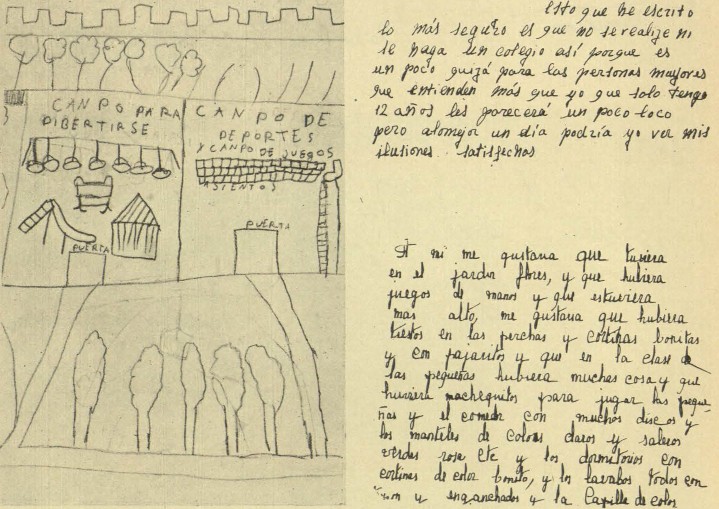 CANPO PARA
DIBERTIRSE
PUERTA
CANPO DE
DEPORTES
Y CANPO DE JUEGOS
ASIENTOS
PUERTA
Esto que he escrito
lo más seguro es que no se realize ni
se haga un colegio así porque es
un poco quizá para las personas mayores
que entienden más que yo que solo tengo
12 años les parecerá un poco loco
pero alomejor un día podría yo ver mis
ilusiones satisfechas
A mi me gustaria que tuviera
en el jardin flores, y que hubiera
juegos de manos y que estuviera
mas alto, me gustaria que hubiera
tiestos en las perchas y cortinas bonitas
y con pajaritos y que en la clase de
las pequeñas hubiera muchas cosas y que
huviera para jugar las peque
ñas y el comedor con muchos discos y
los manteles de colores claros y saleros
verdes rosa Etc y los dormitorios con
cortinas de color bonito, y los lavabos todos con
y enganchados y la Capilla de color